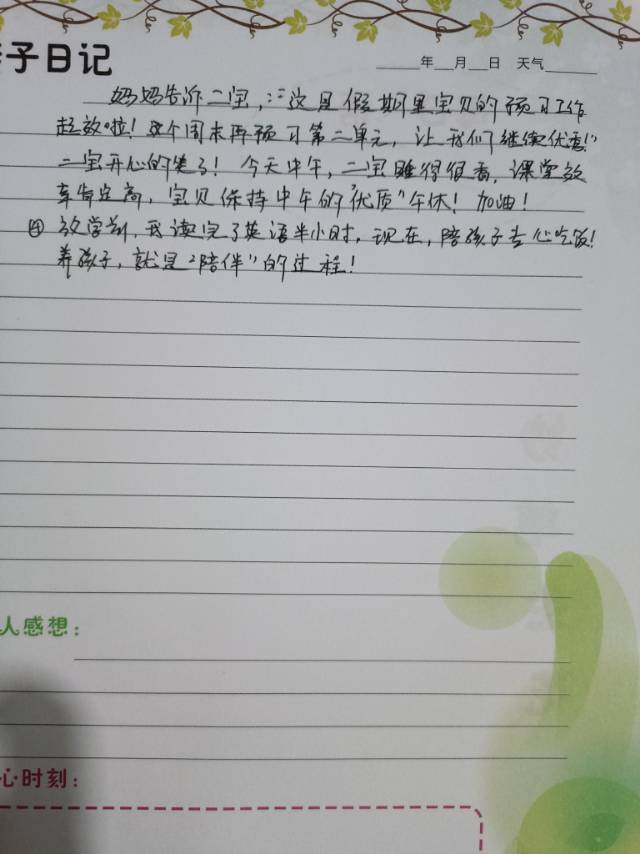 子日记
年 月 日 天气
妈妈告诉二宝,:这是假期里宝贝的预习工作
起效啦!这个周末再预习第二单元,让我们继续优秀!"
二宝开心的笑了!今天中午,二宝睡得很香,课堂效
率肯定高,宝贝保持中午的"优质"午休!加油!
④ 放学前,我读完了英语半小时,现在,陪孩子专心吃饭!
养孩子,就是"陪伴"的过程!
人感想:
心时刻: